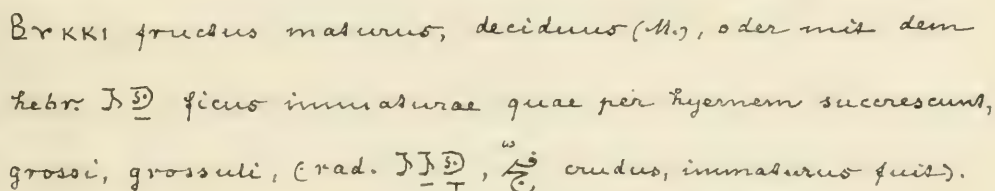 fructus maturus, deciduus (M.), oder mit dem
hebr. פַּג ficus immaturae quae per hyemem succrescunt,
grossi, grossuli, (rad. פָּגַג, فجّ crudus, immaturus fuit).